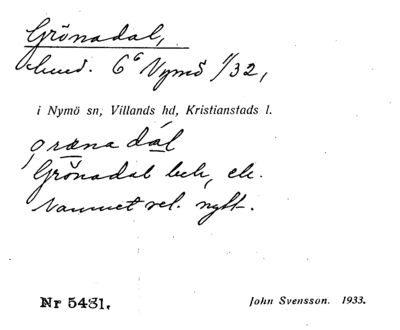 Grönadal,
hmd. 6⁶ Nymö 1/32,
i Nymö sn, Villands hd, Kristianstads l.
græna dál
Grönadal beb, ek.
Namnet rel. nytt.
Nr 5431. John Svensson. 1933.